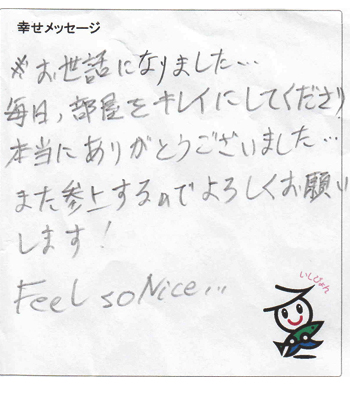 幸せメッセージ
※お世話になりました…
毎日，部屋をキレイにしてくださり
本当にありがとうございました…
また参上するのでよろしくお願い
します！
Feel so Nice...
いしぴょん